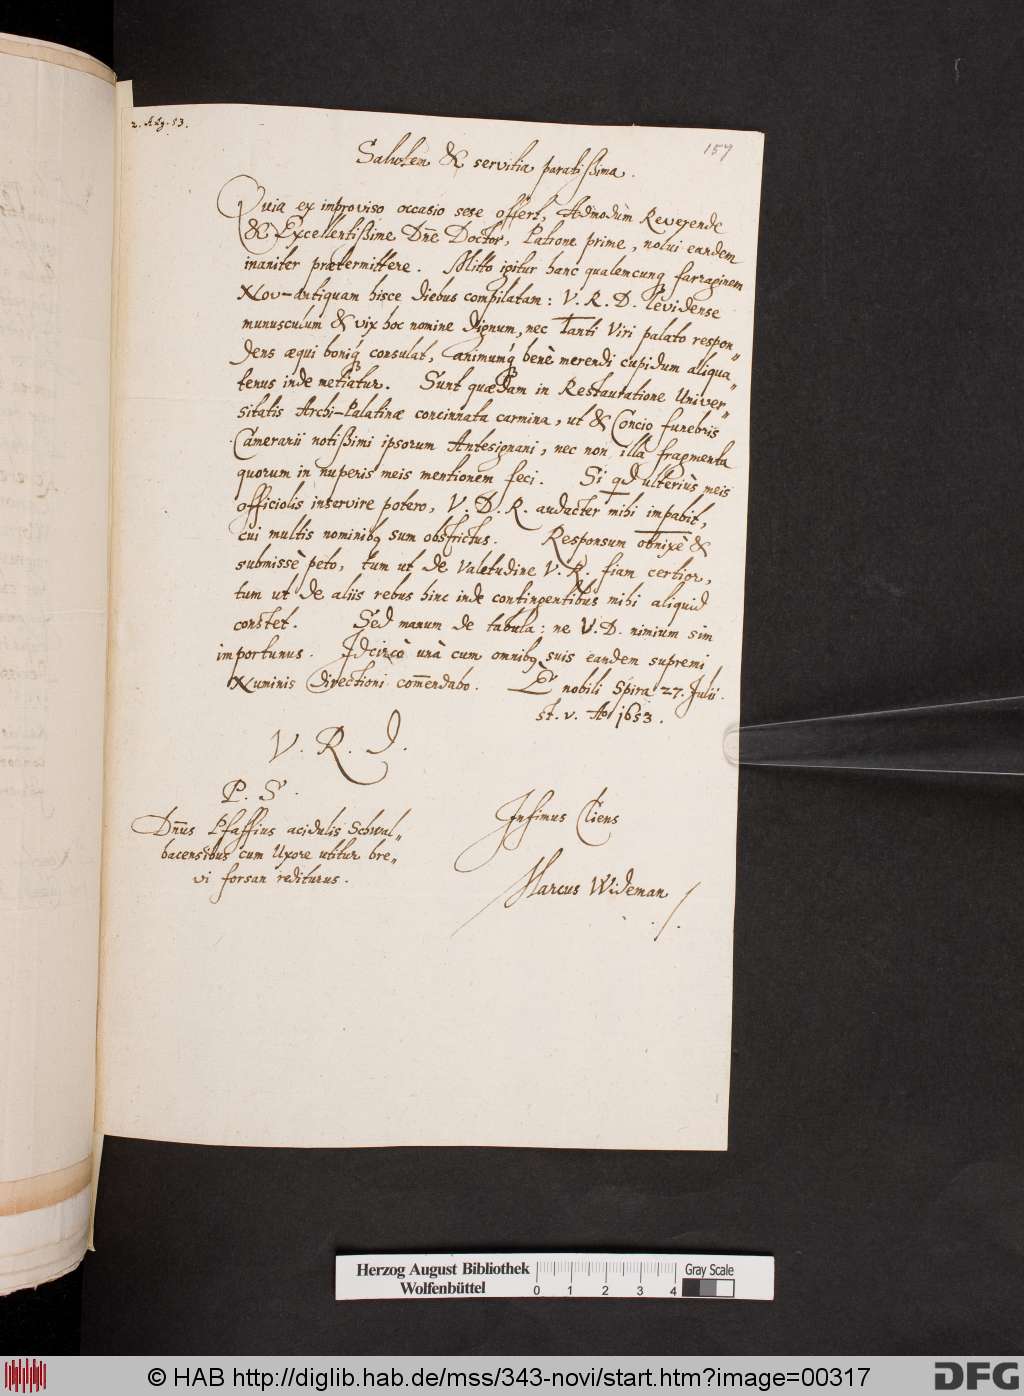 2. Aug. 53.
157
Salutem & servitia paratissima.
Quia ex improviso occasio sese offert, Admodùm Reverende
& Excellentissime Dn̄e Doctor, Patrone prime, nolui eandem
inaniter prætermittere. Mitto igitur hanc qualemcunq farraginem
Nov-Antiquam hisce diebus compilatam: V. R. D. levidense
munusculum & vix hoc nomine dignum, nec Tanti Viri palato respon„
dens æqui boniq́ consulat, animumq́ benè merendi cupidum aliqua„
tenus inde metiatur. Sunt quædam in Restauratione Univer„
sitatis Archi-Palatinæ concinnata carmina, ut & Concio funebris
Camerarii notissimi ipsorum Antesignani, nec non illa fragmenta
quorum in nuperis meis mentionem feci. Si qd ulteriùs meis
officiolis inservire potero, V. D. R. audacter mihi impabit,
cui multis nominibq sum obstrictus. Responsum obnixè &
submissè peto, tum ut de Valetudine V. R. fiam certior,
tum ut de aliis rebus hinc inde contingentibus mihi aliquid
constet. Sed manum de tabula: ne V. D. nimium sim
importunus. Idcircò unà cum omnibq suis eandem supremi
Numinis directioni com̄endabo. E nobili Spira 27. Julii
st. v. Ao 1653.
V. R. D.
P. S.
Dn̄us Pfaffius acidulis Schwal„
bacensibus cum Uxore utitur bre„
vi forsan rediturus.
Infimus Cliens
Marcus Wideman
Herzog August Bibliothek
Wolfenbüttel
0 1 2 3 4
Gray Scale
© HAB http://diglib.hab.de/mss/343-novi/start.htm?image=00317
DFG